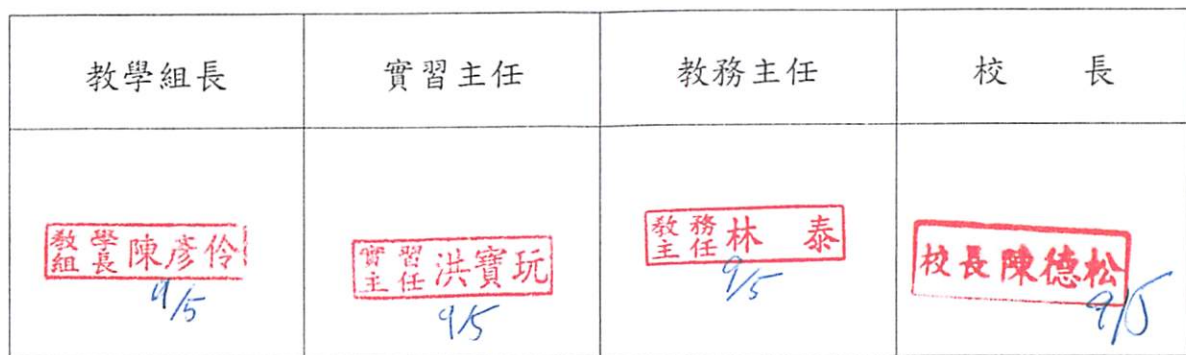 教學組長 實習主任 教務主任 校長
教學組長 陳彥伶
9/5
實習主任 洪寶玩
9/5
教務主任 林泰
9/5
校長陳德松
9/5